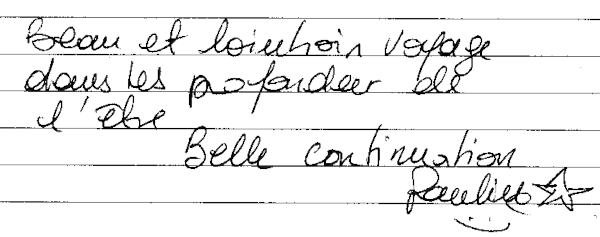 Beau et lointain voyage
dans les profondeur de
l'être
Belle continuation
Pauline